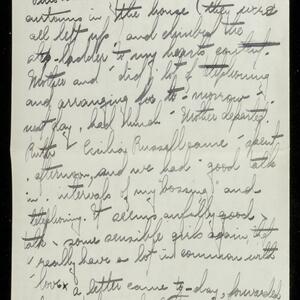 in the house (they were
all let up and climbed the
ladder to my hearts content.
Mother and I did a lot of telephoning
and arranging for to-morrow
next day, had lunch Mother departed.
Ruth Russell came & spent
afternoon, and we had a good talk
in intervals of my bossing and
telephoning. It seems awfully good
talk to some sensible girls again, that
I really have a lot in common with
a letter came to-day, forwarded